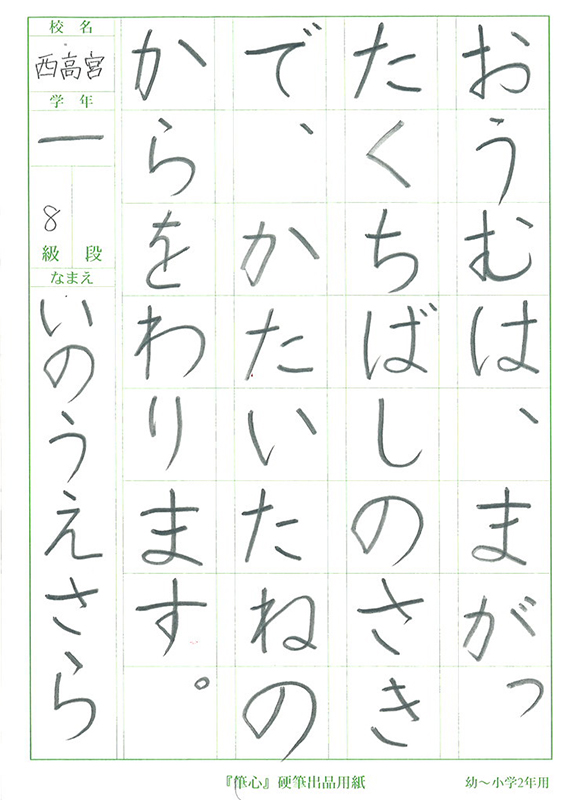 おうむは、まがっ
たくちばしのさき
で、かたいたねの
からをわります。
校名
西高宮
学年
一
8
級 段
なまえ
いのうえさら
『筆心』硬筆出品用紙
幼～小学2年用